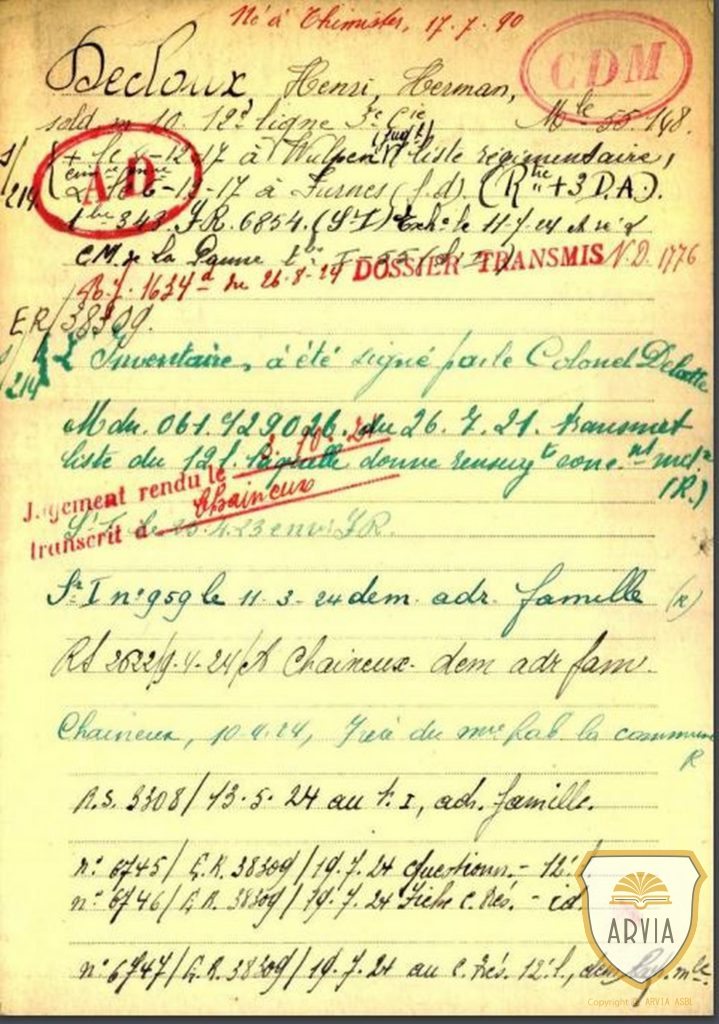 Né à Thimister, 17.7.90
CDM
Decloux Henri, Herman,
sold. m. 10. 12e ligne 3e Cie Mle 55.148.
+ le 4-12-17 à Wulpen liste régimentaire,
AD
S/214
6-12-17 à Furnes (f.d). (Rtre + 3 D.A.).
343. J.R. 6854. (St I) le 11 7 24
C.M. de la Panne
DOSSIER TRANSMIS N.D. 1776
1634 du 26-8-24
ER/38309.
S/214
L'Inventaire, a été signé par le Colonel Delatte
Mdn. 061.729026. du 26.7.21. transmet
liste du 12 l. donne renseigts conc.
(R.)
Jugement rendu le 2 10 24
transcrit à Chaineux
St I. le 25.4.23 env. J.R.
St I n° 959 le 11-3-24 dem. adr. famille (R)
RS 2622/9-4-24/A Chaineux- dem adr fam.
Chaineux, 10.4.24, la commune
R
R.S. 3308/13-5-24 au St. I, adr. famille.
n° 6745/E.R. 38309/19.7.24 Questionn.- 12e l.
n° 6746/E.R. 38309/19.7.24 Fiche C. Rés. - id.
n° 6747/E.R. 38309/19.7.24 au C. Rés. 12e l.,
ARVIA
Copyright © ARVIA ASBL